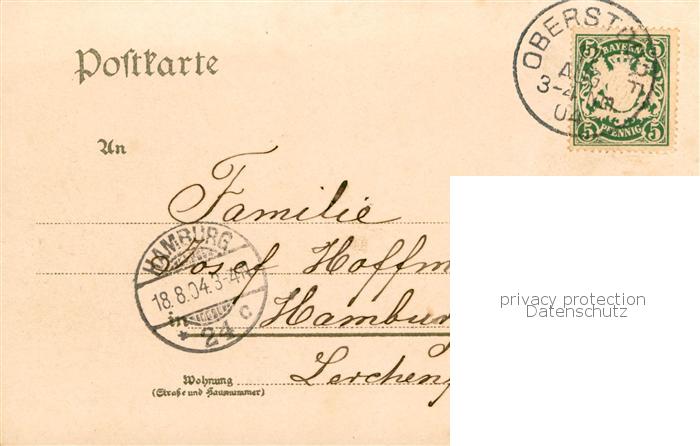 Postkarte
OBERST
3-4
04
5 BAYERN 5
5 PFENNIG 5
An
Familie
Josef Hoffm
Hambur
Lerchenf
HAMBURG
18.8.04.3-4N
* 24 c
in
Wohnung
(Straße und Hausnummer)
privacy protection
Datenschutz